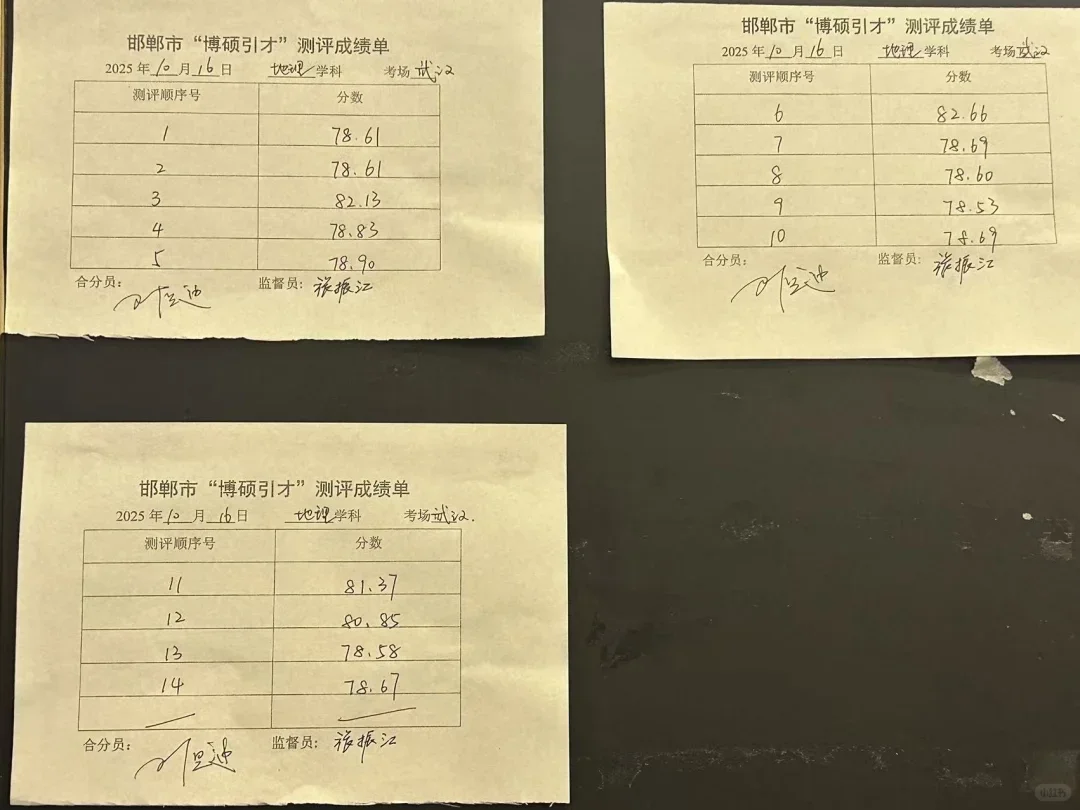 邯郸市“博硕引才”测评成绩单
2025年10月16日 地理学科 考场武汉
测评顺序号 分数
1 78.61
2 78.61
3 82.13
4 78.83
5 78.90
合分员： 监督员：张振江
邯郸市“博硕引才”测评成绩单
2025年10月16日 地理学科 考场武汉
测评顺序号 分数
6 82.66
7 78.69
8 78.60
9 78.53
10 78.69
合分员： 监督员：张振江
邯郸市“博硕引才”测评成绩单
2025年10月16日 地理学科 考场武汉.
测评顺序号 分数
11 81.37
12 80.85
13 78.58
14 78.67
合分员： 监督员：张振江
小红书